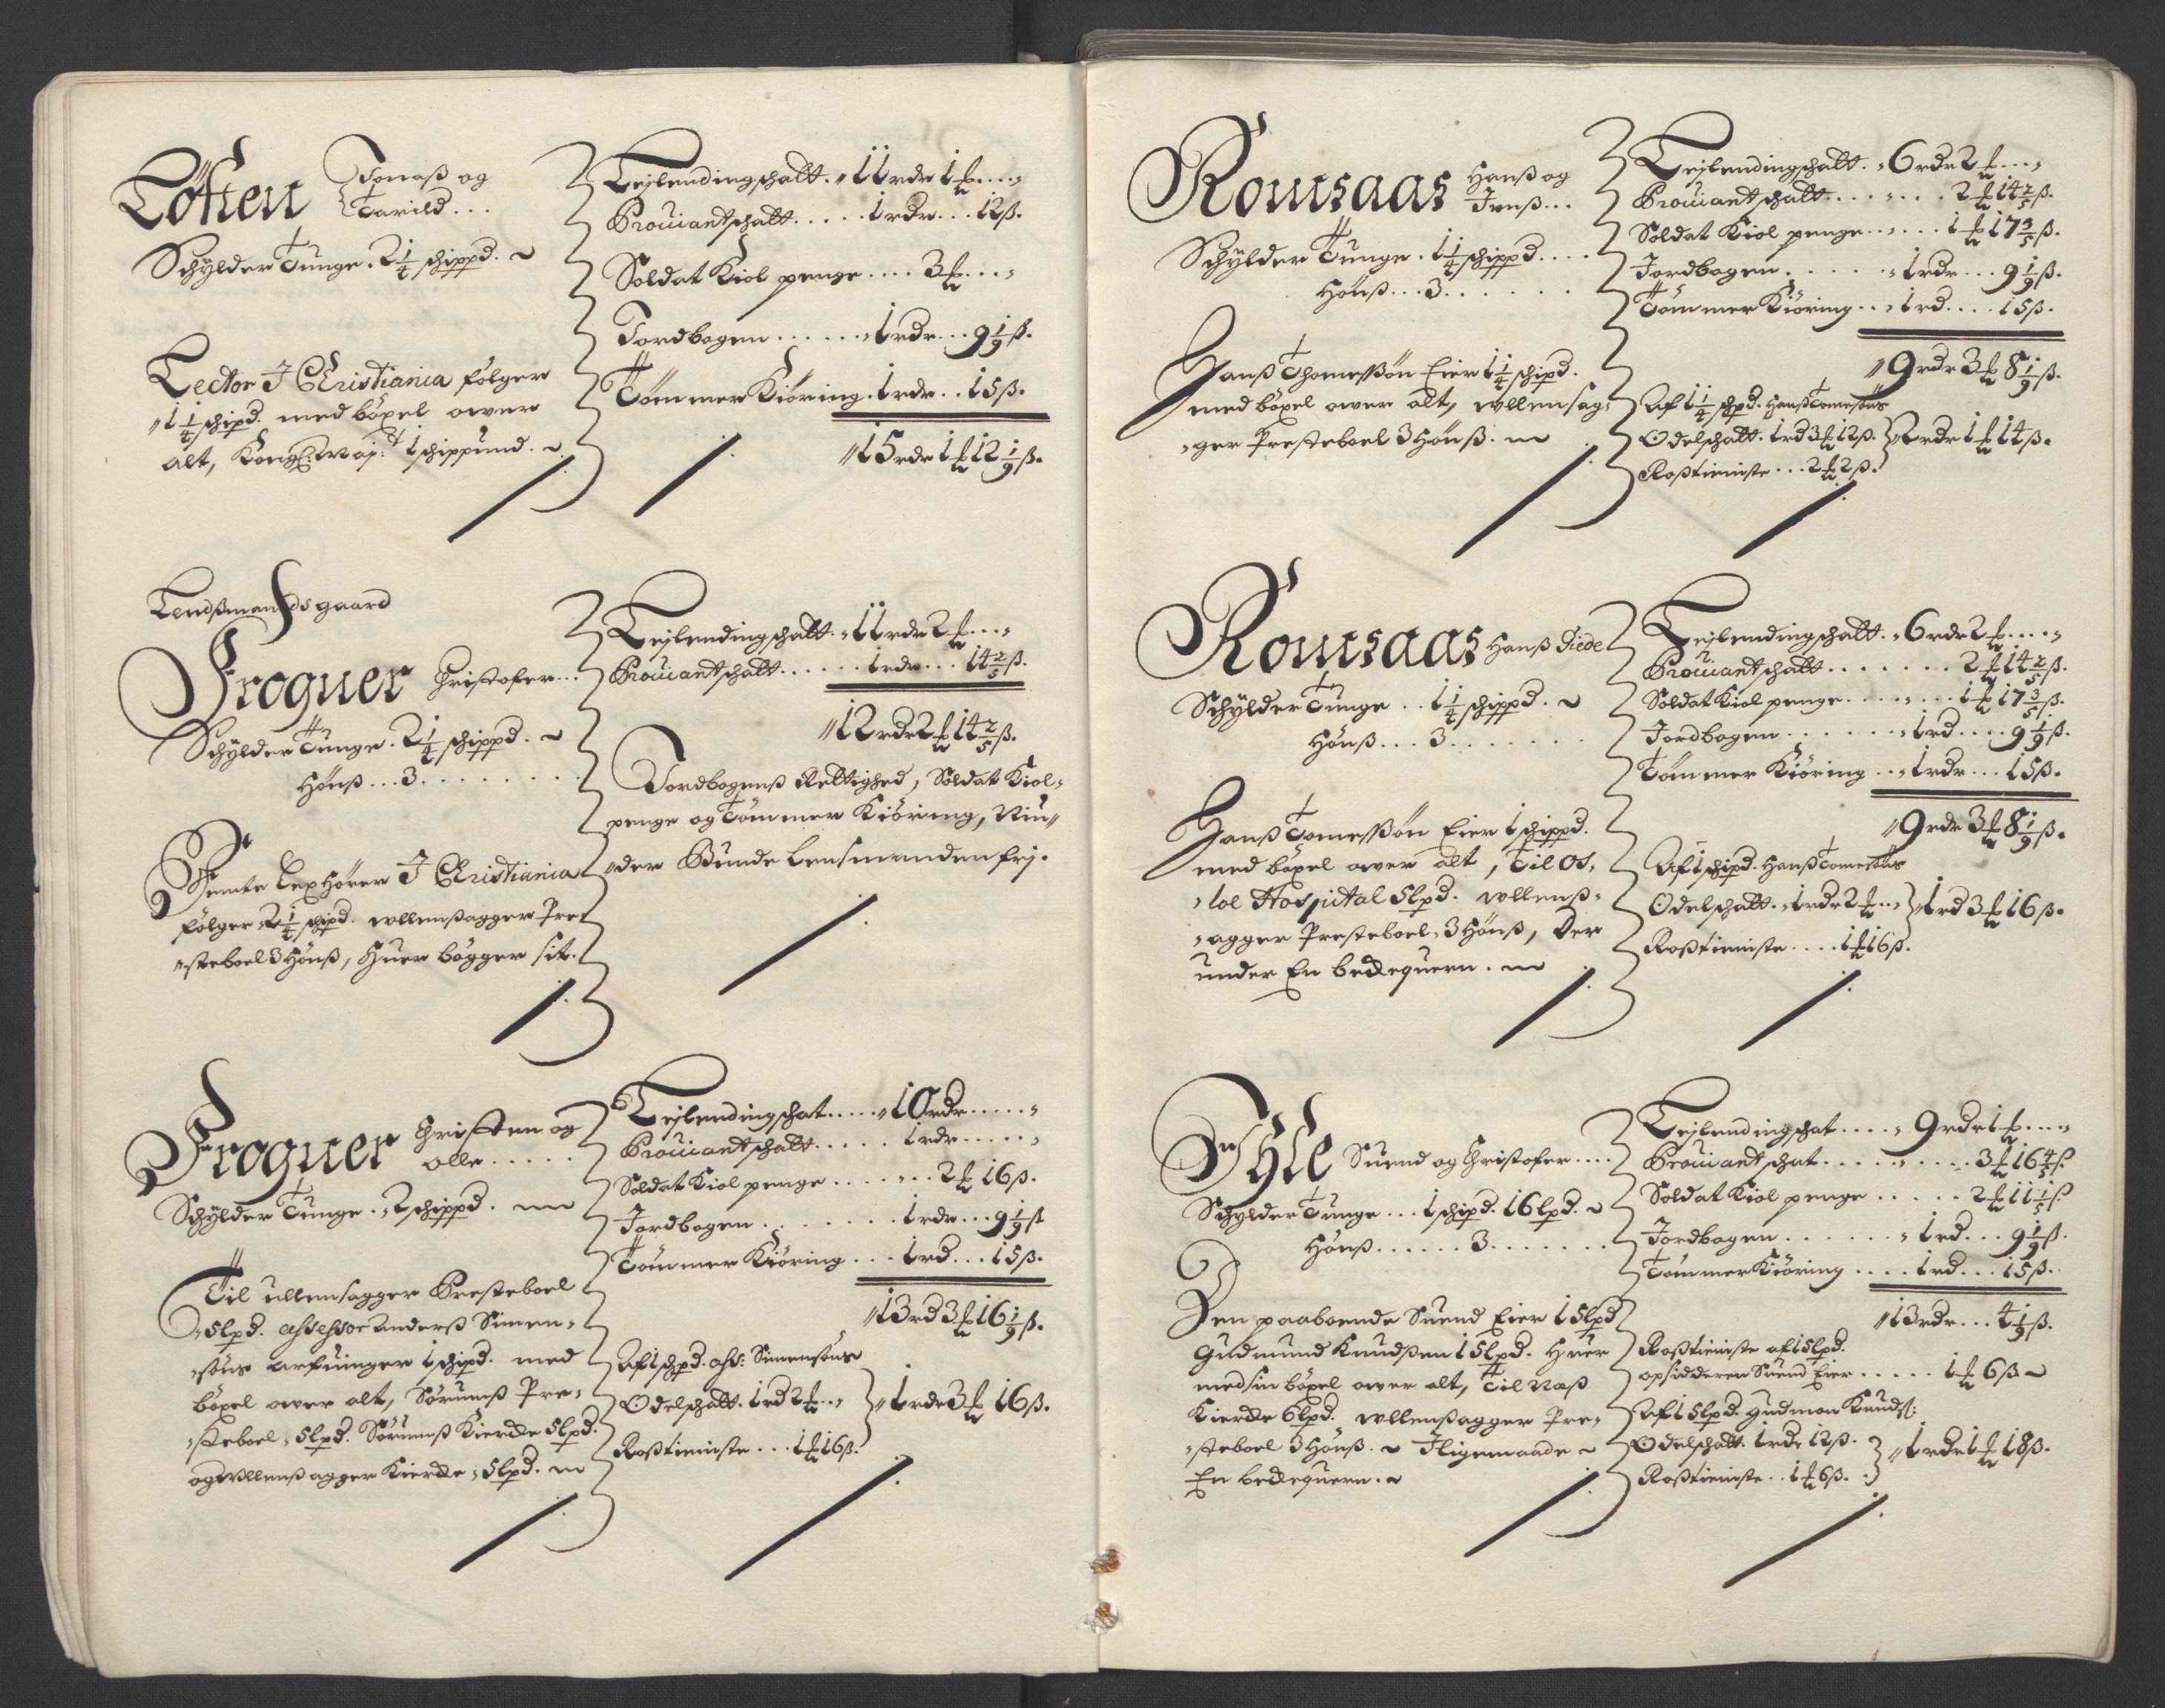 Töften Jonaß og
Tarild...
Schÿlder Tunge. 2 1/4 schippd.
Lector J Christiania følger
1 1/4 schipd. med böxel ower
alt, Kongl: Maj:t 1 schippund.
Lejlendingschatt. 11 rdr 1 ℔...
Prouiantschatt..... 1 rdr... 12 ß.
Soldat Kiol penge.... 3 ℔...
Jordbogen...... 1 rdr... 9 1/9 ß.
Tömmer Kiöring. 1 rdr.. 15 ß.
15 rdr 1 ℔ 12 1/9 ß.
Lendßmandsgaard
Froguer Christofer...
Schÿlder Tunge. 2 1/4 schippd.
Hönß... 3........
Femte Lexhörer J Christiania
følger 2 1/4 schipd. wllenßagger Pre
steboel 3 Hönß, Huer bögger sit.
Lejlendingschatt. 11 rdr 2 ℔...
Prouiantschatt..... 1 rdr... 14 2/5 ß.
12 rdr 2 ℔ 14 2/5 ß.
Jordbogenß Rettighed, Soldat Kiol
penge og Tömmer Kiöring, Niu
der Bunde Lensmanden frj.
Froguer Christen og
olle.....
Schÿlder Tunge. 2 schippd.
Til ullensagger Presteboel
5 lpd. assessor Anderß Simen
søns arfuinger 1 schipd. med
böxel ower alt, Sörumß Pre
steboel 5 lpd. Sörumß Kircke 5 lpd.
og wllenßagger Kircke 5 lpd.
Lejlendingschat..... 10 rdr.....
Prouiantschatt..... 1 rdr.....
Soldat Kiol penge....... 2 ℔ 16 ß.
Jordbogen....... 1 rdr... 9 1/9 ß
Tömmer Kiöring... 1 rd... 15 ß.
13 rd 3 ℔ 16 1/9 ß.
Af 1 schpd. ass: Simensöns
Odelschatt. 1 rd 2 ℔..
1 rdr 3 ℔ 16 ß.
Roßtieniste... 1 ℔ 16 ß.
Romsaas Hanß og
Jenß...
Schÿlder Tunge. 1 1/4 schippd....
Hönß... 3......
Hanß Thomeßön Eier 1 1/4 schipd.
med böxel ower alt, wllensag
ger Presteboel 3 Hönß.
Lejlendingschatt. 6 rdr 2 ℔...
Prouiantschatt....... 2 ℔ 14 2/5 ß.
Soldat Kiol penge..... 1 ℔ 17 3/5 ß.
Jordbogen...... 1 rdr... 9 1/9 ß.
Tömmer Kiöring.. 1 rd.... 15 ß.
9 rdr 3 ℔ 8 1/9 ß.
Af 1 1/4 schpd. Hanß Tomesöns
Odelschatt. 1 rd 3 ℔ 12 ß.
2 rdr 1 ℔ 14 ß.
Roßtieniste... 2 ℔ 2 ß.
Romsaas Hanß Siede
Schÿlder Tunge.. 1 1/4 schippd.
Hönß... 3.......
Hanß Tomeßön Eier 1 schippd.
med böxel ower alt, Til Os
loe Hospital 5 lpd. wllenß
agger Presteboel 3 Hönß, Der
under En beckequern.
Lejlendingschatt. 6 rdr 2 ℔....
Prouiantschatt....... 2 ℔ 14 2/5 ß.
Soldat Kiol penge...... 1 ℔ 17 3/5 ß.
Jordbogen...... 1 rd.... 9 1/9 ß.
Tömmer Kiöring... 1 rdr... 15 ß.
9 rdr 3 ℔ 8 1/9 ß.
Af 1 schipd. Hanß Tomesöns
Odelschatt. 1 rdr 2 ℔..
1 rd 3 ℔ 16 ß.
Roßtieniste.... 1 ℔ 16 ß.
Suend og Christofer....
Schÿlder Tunge... 1 schipd. 16 lpd.
Hönß...... 3.......
Den paaboende Suend Eier 15 lpd
Gudmund Knudßen 15 lpd. Huer
med sin böxel ower alt, Til Naß
Kircke 6 lpd. wllenßagger Pre
steboel 3 Hönß. Jligemaade
En beckequern.
Lejlendingschat.... 9 rdr 1 ℔....
Prouiantschat......... 3 ℔ 16 4/5 ß
Soldat Kiol penge..... 2 ℔ 11 1/5 ß
Jordbogen...... 1 rd... 9 1/9 ß.
Tömmer Kiöring.... 1 rd... 15 ß.
13 rdr... 4 1/9 ß.
Roßtieniste af 15 lpd.
opsidderen Suend Eier..... 1 ℔ 6 ß
Af 15 lpd. Gudmon Knudß:
Odelschatt. 1 rdr 12 ß.
1 rdr 1 ℔ 18 ß.
Roßtieniste.. 1 ℔ 6 ß.